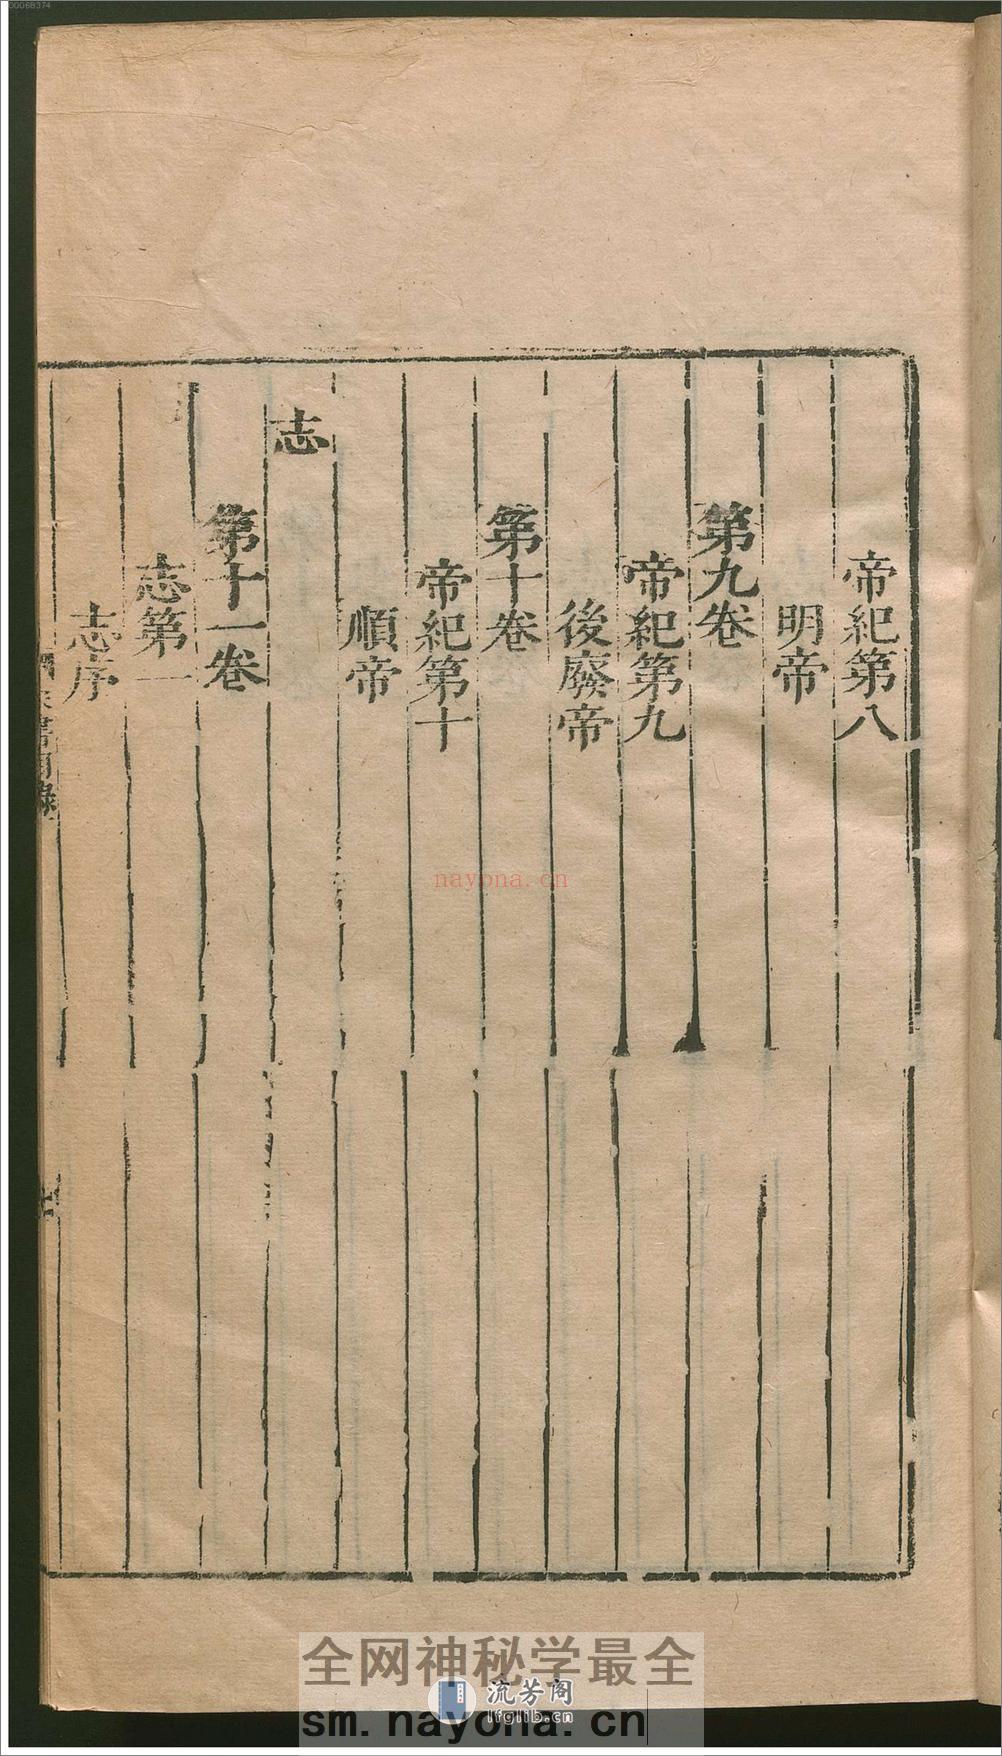 00068374
帝紀第八
明帝
第九卷
帝紀第九
後廢帝
第十卷
帝紀第十
順帝
志
第十一卷
志第一
志序
書目錄
nayona.cn
全网神秘学最全
流芳阁
lfglib.cn
sm.nayona.cn